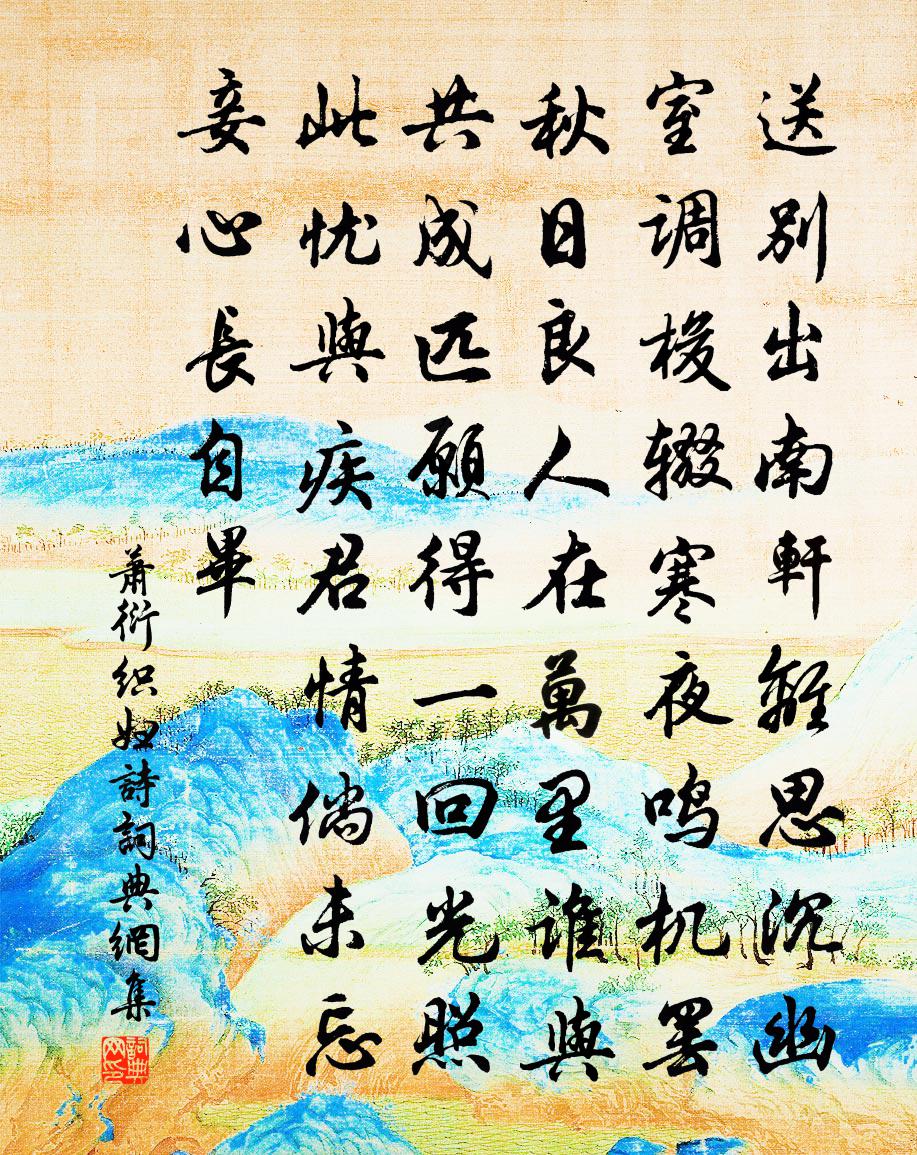 送别出南軒離思沉幽
室调梭辍寒夜鸣机罢
秋日良人在萬里谁與
共成匹願得一回光照
此忧與疾君情倘未忘
妾心長自畢
萧衍织妇詩詞典網集
詞典网印